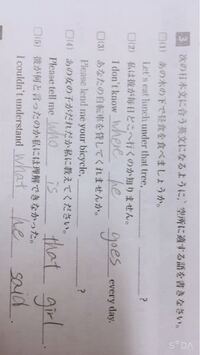 3 次の日本文に合う英文になるように，空所に適する語を書きなさい。
(1) あの木の下で昼食を食べましょうか。
Let's eat lunch under that tree, ________ ________?
(2) 私は彼が毎日どこへ行くのか知りません。
I don't know where he goes every day.
(3) あなたの自転車を貸してくれませんか。
Please lend me your bicycle, ________ ________?
(4) あの女の子がだれだか私に教えてください。
Please tell me who is that girl.
(5) 彼が何と言ったのか私には理解できなかった。
I couldn't understand what he said.